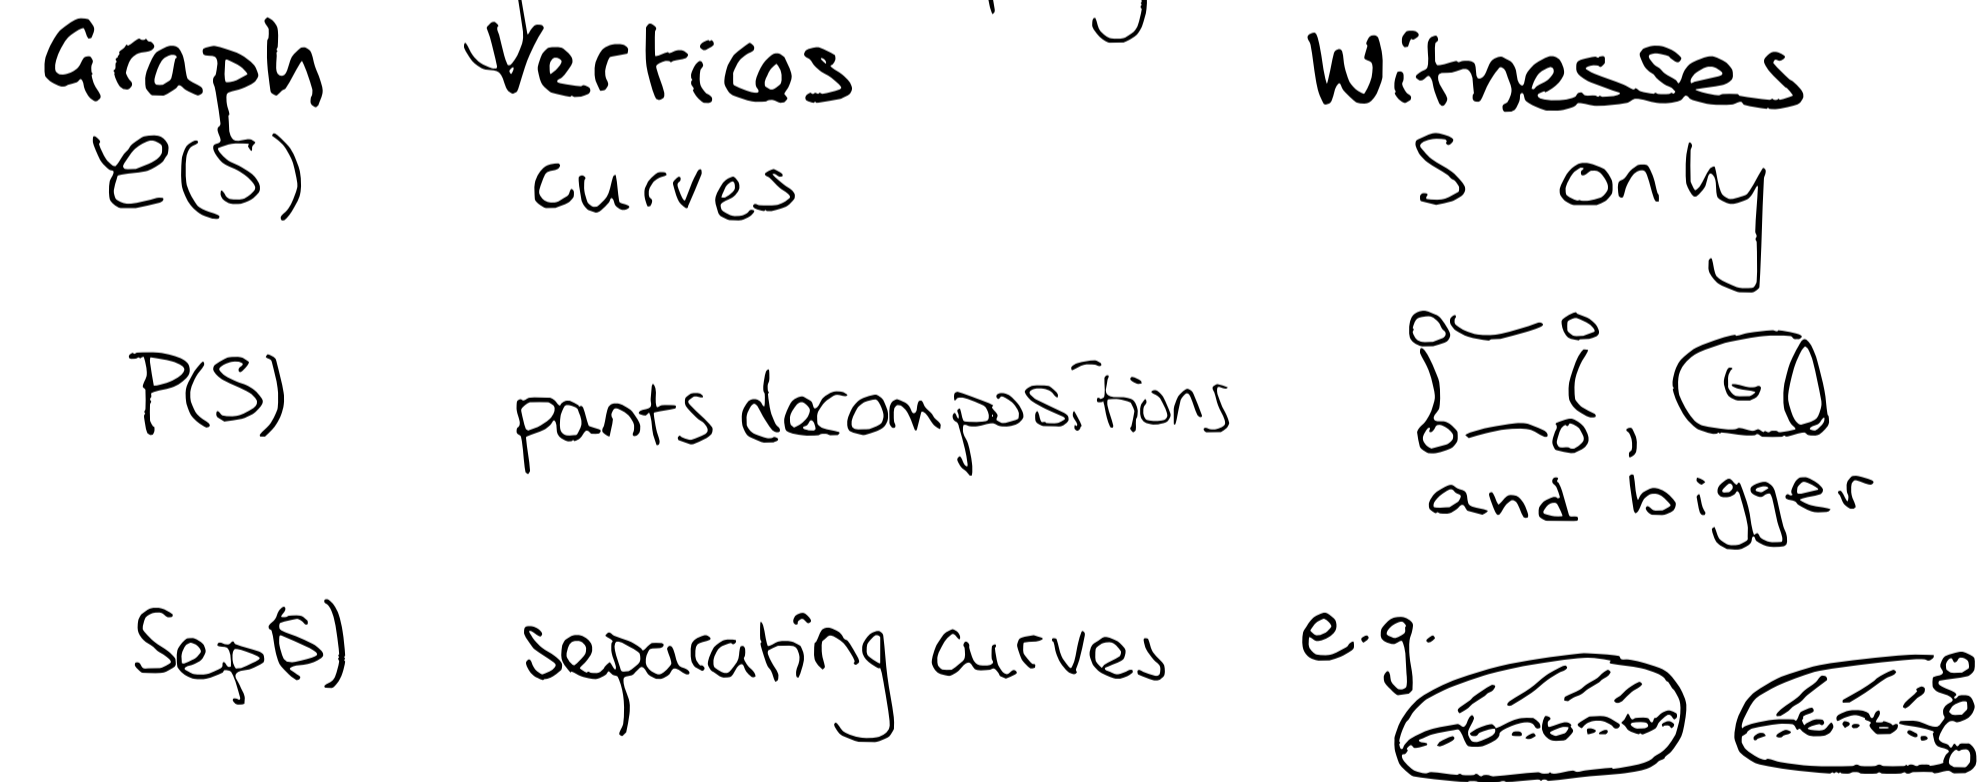 Graph Vertices Witnesses
C(S) curves S only
P(S) pants decompositions , and bigger
Sep(S) separating curves e.g.